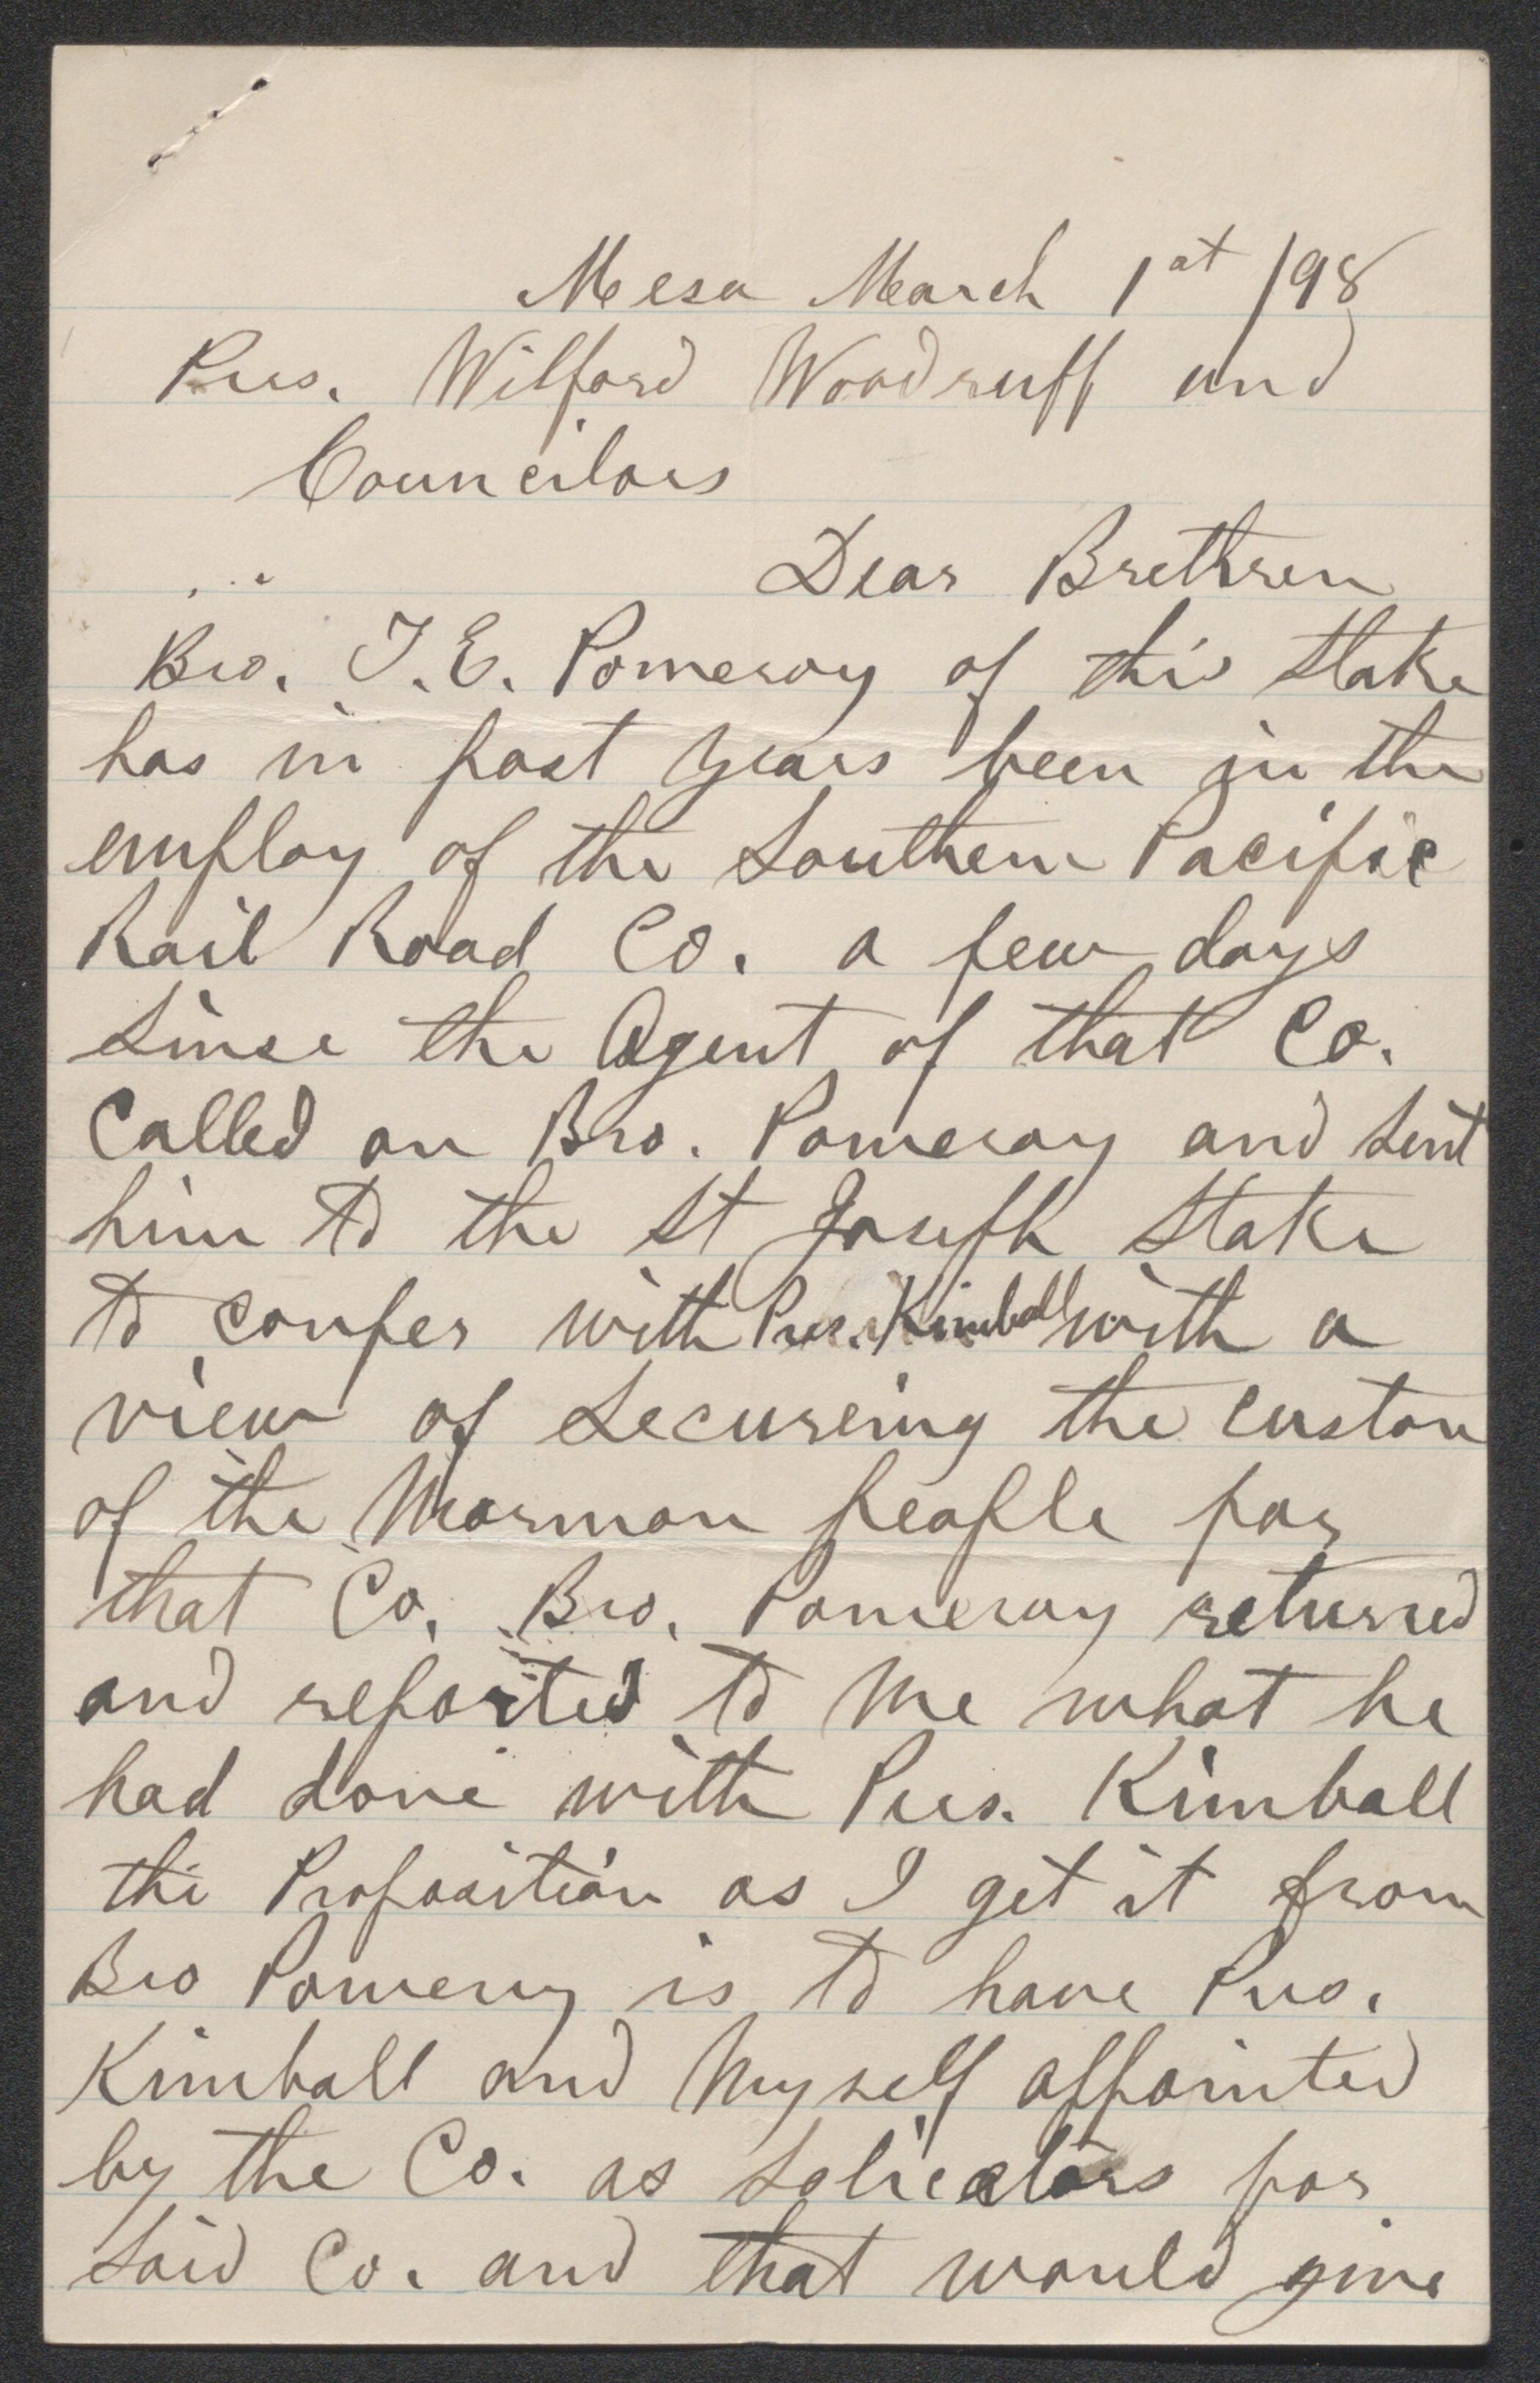 Meesa March 1st /98
Pres. Wilford Woodruff and
Councilors
Dear Brethren
Bro. T. E. Pomeroy of this Stake
has in past years been in the
employ of the Southern Pacific
Rail Road Co. a few days
Since the Agent of that Co.
Called on Bro. Pomeroy and Sent
him to the St Joseph Stake
to confer with Pres. Kimball with a
view of Secureing the custom
of the Mormon people for
that Co. Bro. Pomeroy returned
and reported to me what he
had done with Pres. Kimball
the Proposition as I get it from
Bro Pomeroy is to have Pres.
Kimball and Myself appointed
by the Co. as Solicators for
Said Co. and that would give